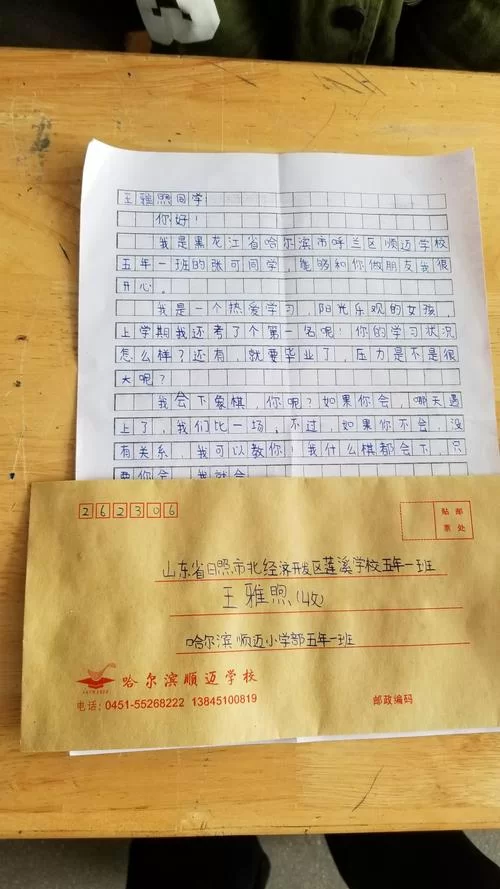 王雅煦同学
你好！
我是黑龙江省哈尔滨市呼兰区顺迈学校
五年一班的张可同学，能够和你做朋友我很
开心。
我是一个热爱学习，阳光乐观的女孩，
上学期我还考了个第一名呢！你的学习状况
怎么样？还有，就要毕业了，压力是不是很
大呢？
我会下象棋，你呢？如果你会，哪天遇
上了，我们比一场。不过，如果你不会，没
有关系，我可以教你！我什么棋都会下，只
要你会，我就会
262306
贴邮
票处
山东省日照市北经济开发区莲溪学校五年一班
王雅煦（收）
哈尔滨顺迈小学部五年一班
哈尔滨顺迈学校
电话：0451-55268222 13845100819
邮政编码